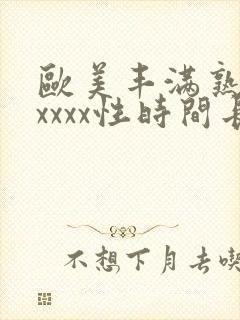 歐美丰滿熟
xxxx性時間長
不想下月去喫